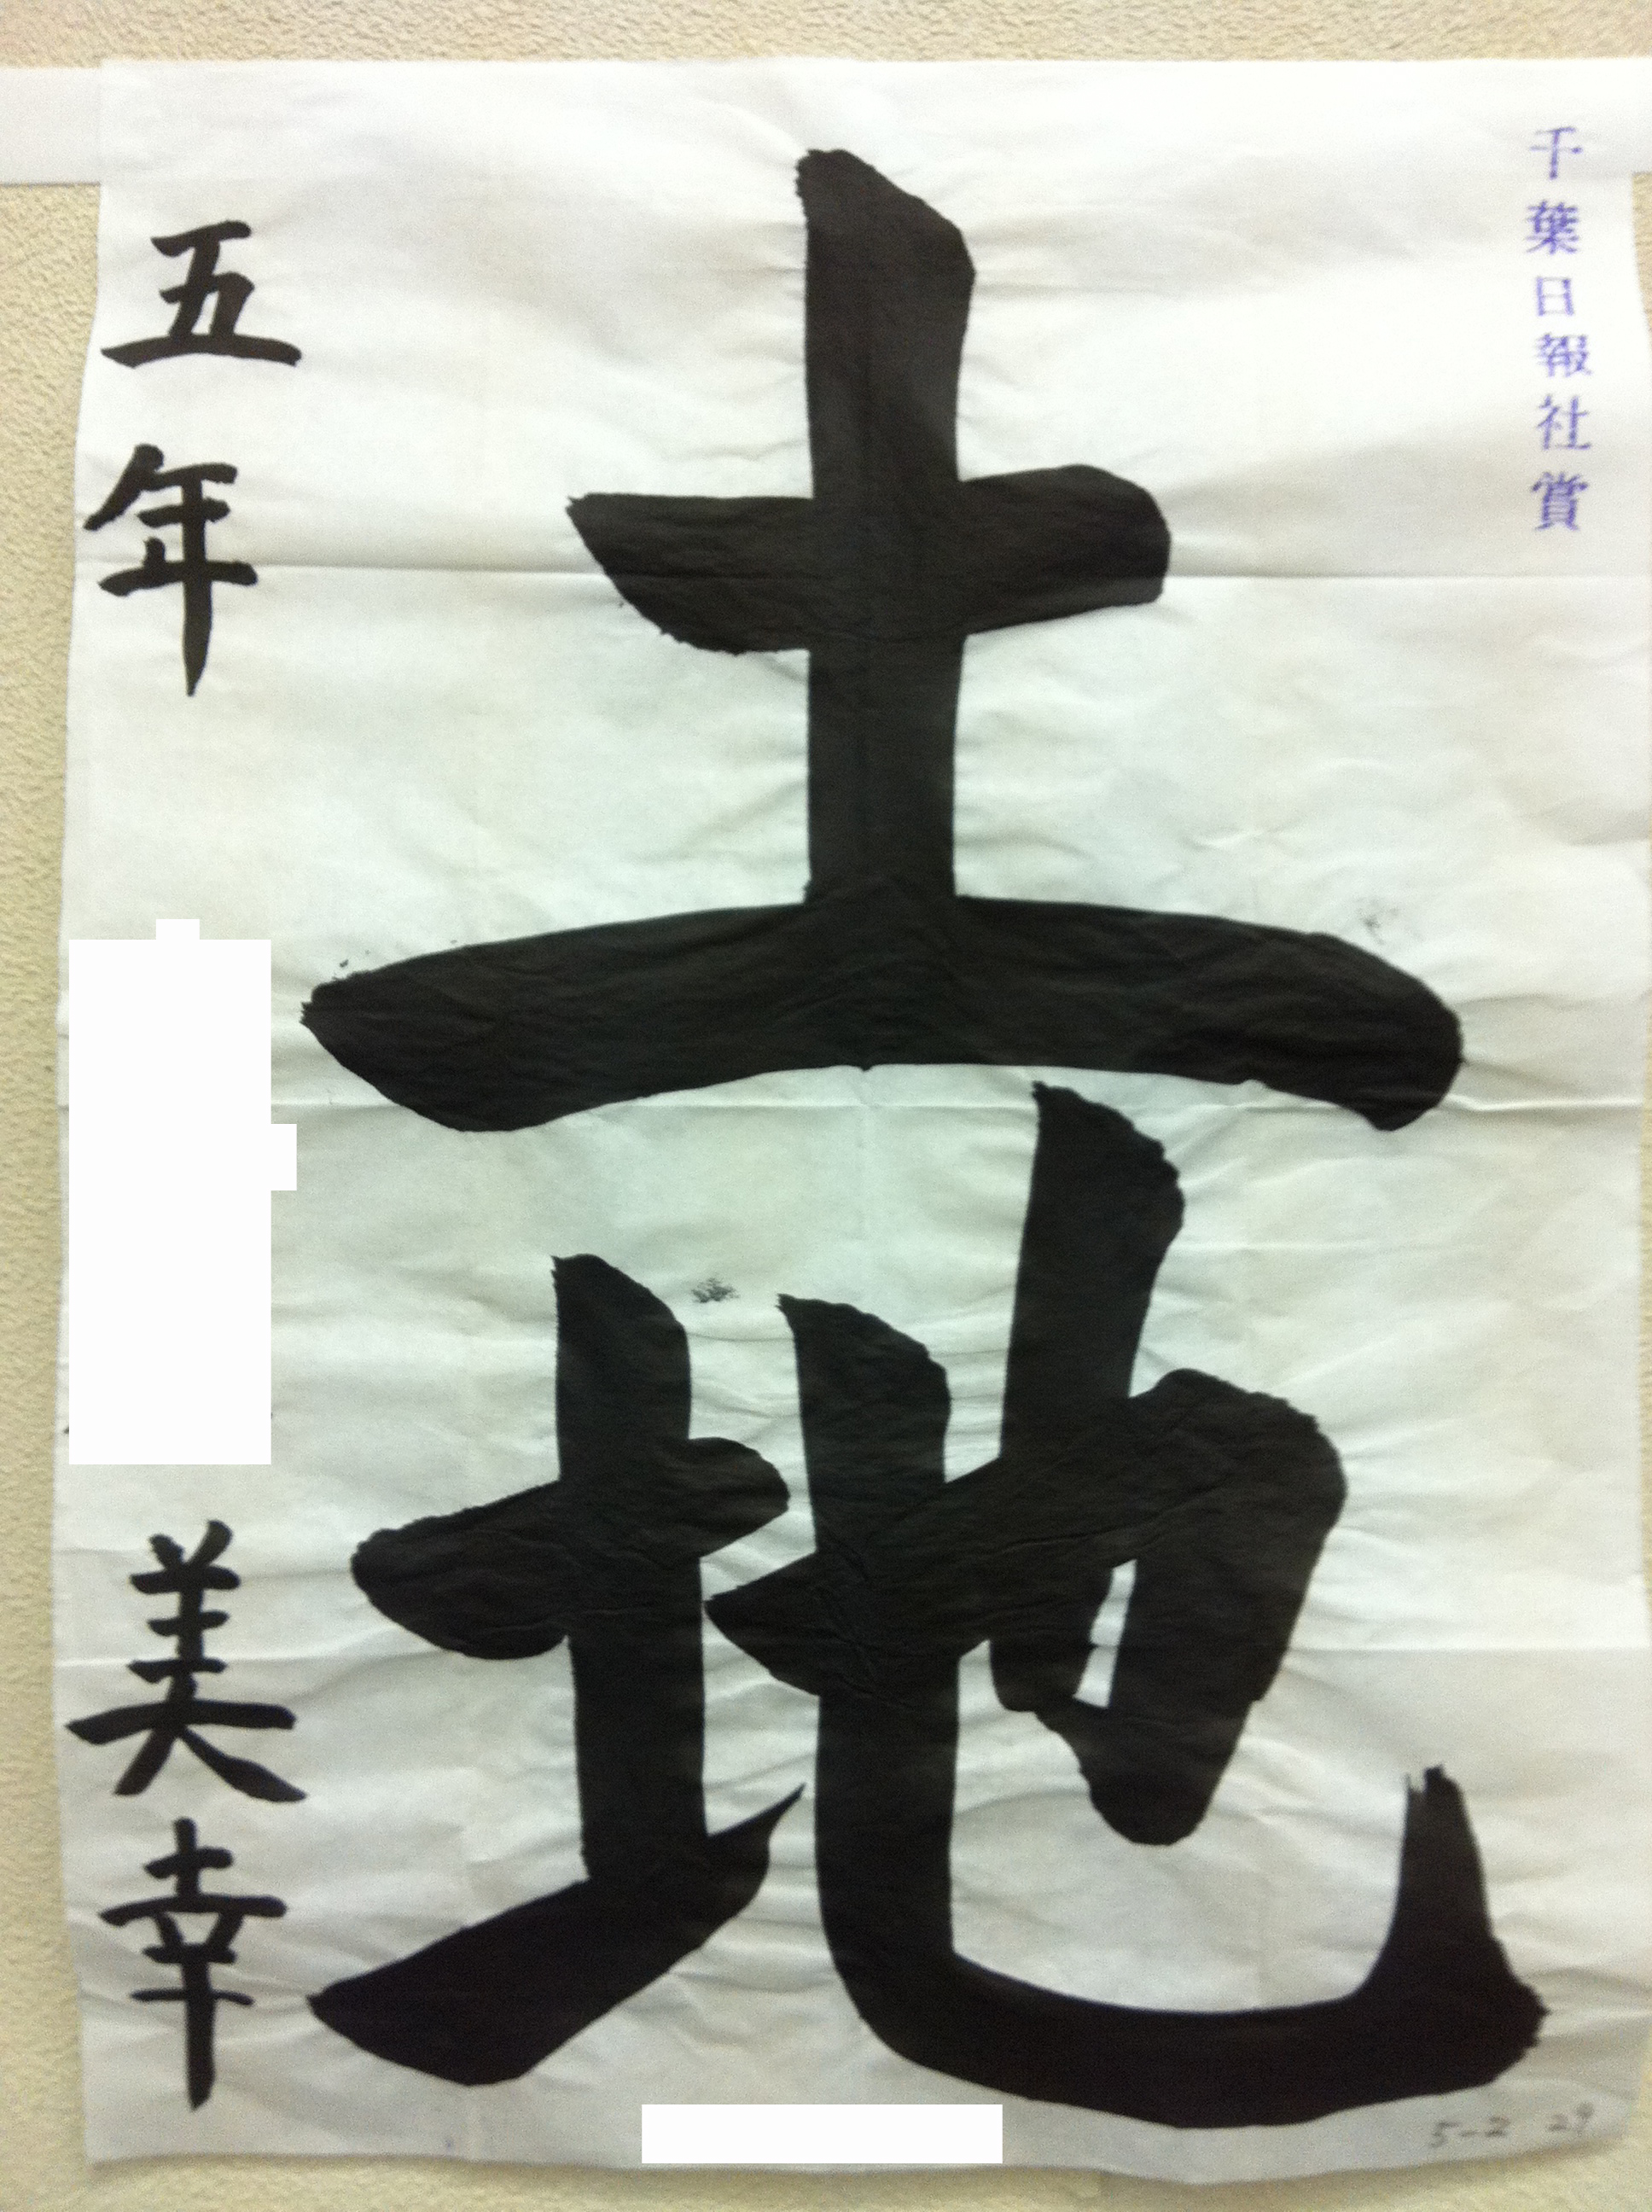 千葉日報社賞
土地
五年
美幸
5-2 29